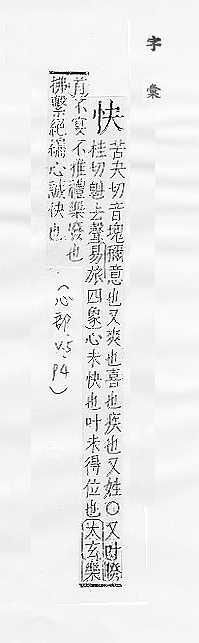 字彙
快
苦夬切音塊稱意也又爽也喜也疾也又姓〇又叶
桂切魁去聲易旅四象心未快也叶未得位也太玄樂
首不宴不雅禮樂廢也
拂繫絕纗心誠快也
(心部、V.5、P4)